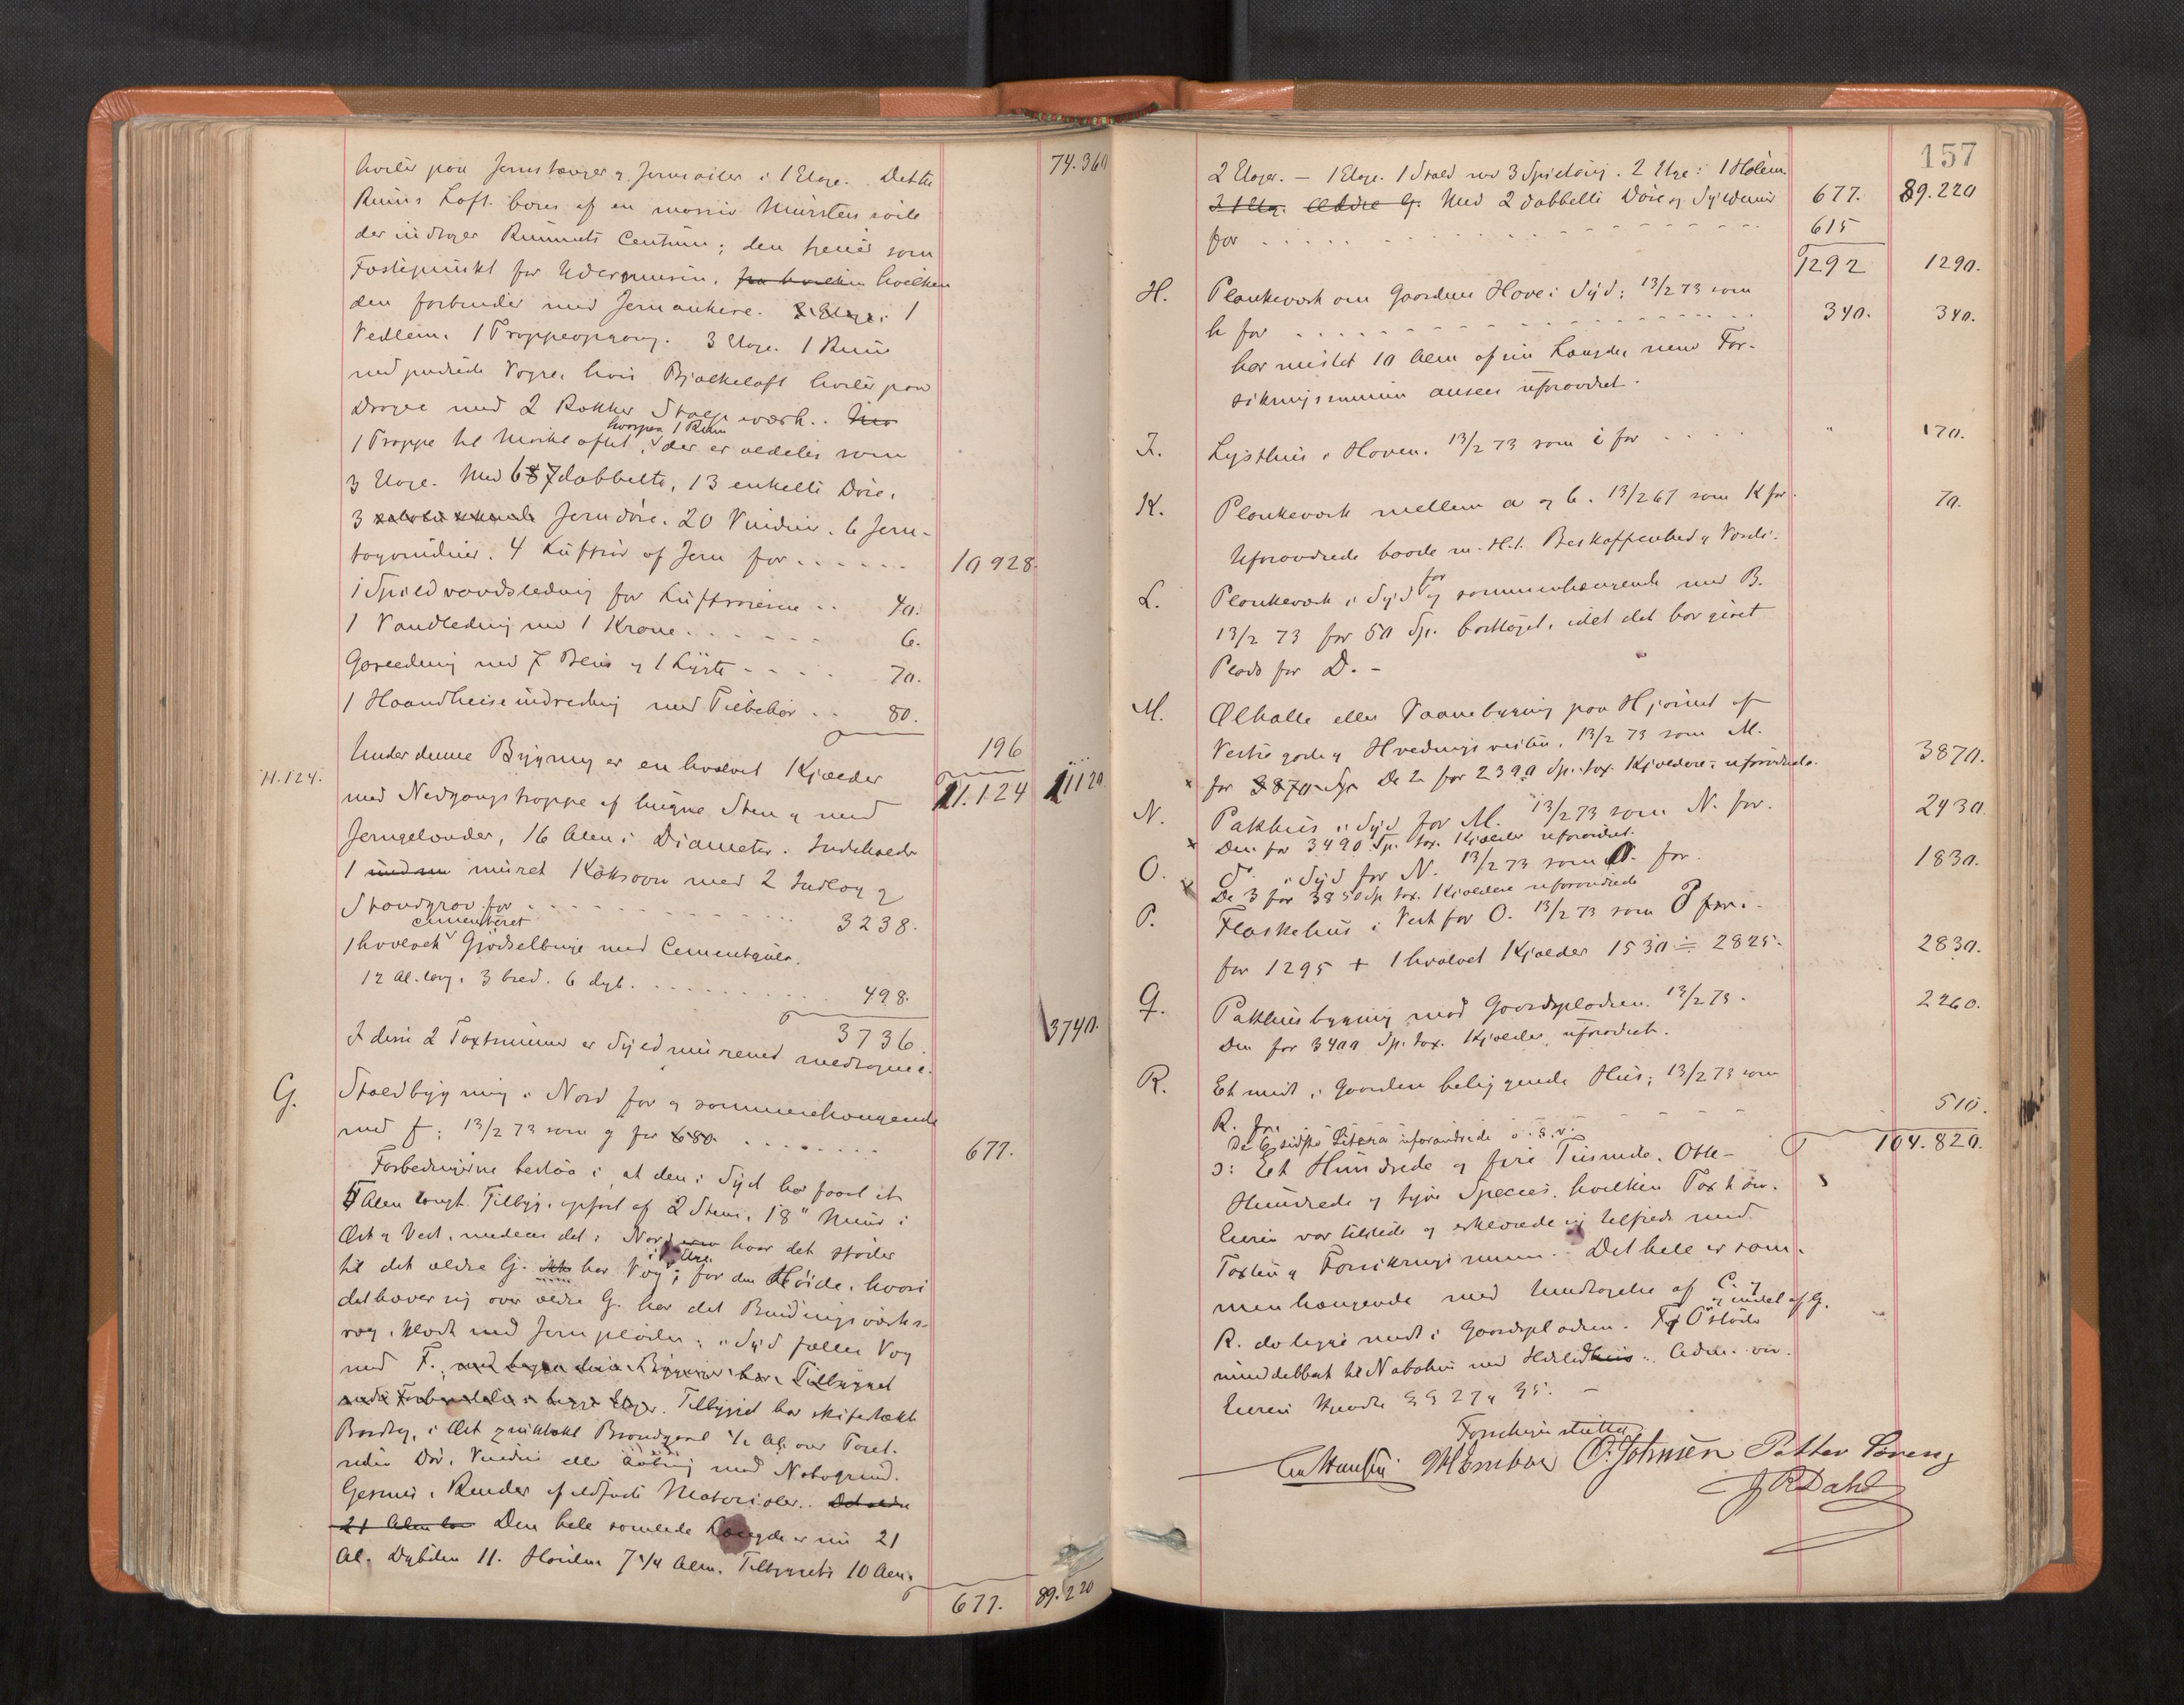 74.360
hviler paa Jernstænger og Jernsøiler i 1 Etage. Dette
Rums Loft bæres af en massiv Mursten søile
der indtager Rummets Centrum; den tjener som
Fæstepunkt for Ydermuren. fra hvilken hvilken
den forbinder med Jernankere. 2 Etage: 1
Vedlem. 1 Trappeopgang. 3 Etage. 1 Rum
med pudsede Vægge, hvis Bjælkeloft hviler paa
Dragere med 2 Rækker Stolpeværk..
1 Trappe til Mørkloftet, hvorpaa 1 Rum der er aldeles som
3 Etage. Med 687 dobbelte, 13 enkelte Døre,
3 Jerndøre. 20 Vinduer. 6 Jern-
tagvinduer. 4 Luftrør af Jern for ...... 10928.
1 Spildvandsledning for Luftrørene .. 40.
1 Vandledning med 1 Krane ...... 6.
Gasledning med 7 Blus og 1 Lyste .... 70.
1 Haandheiseindredning med Tilbehør .. 80.
196
11.124 11120
H.124.
Under denne Bygning er en hvælvet Kjælder
med Nedgangstrappe af hugne Sten og med
Jerngelænder, 16 Alen i Diameter. Indeholder
1 muret Koksovn med 2 Indlæg og
Standgrav for ...... 3238.
1 hvælvet cementeret Gjødselbinge med Cementgulv.
12 Al. lang. 3 bred. 6 dyb. ...... 498.
3736. 3740.
I disse 2 Taxtsummer er Syldmurene medtagne.
G. Staldbygning i Nord for og sammenhængende
med f; 13/2 73 som g for 680 ...... 677.
Forbedringerne bestaa i, at den i Syd har faaet et
5 Alen langt Tilbyg. opført af 2 Stens, 18" Muur i
Øst og Vest, medens det i Nord hvor det støder
til det ældre G. ikke har Væg i 1 Etage; for den Høide, hvori
det hæver sig over ældre G. har det Bindingsværks-
væg, klædt med Jernplader; i Syd fælles Væg
med F. med begge disse Bygninger har Tilbygget
begge Etager. Tilbygget har skifertækt
Bordtag, i Øst zinktækt Brandgavl 1/2 Al. over Taget.
uden Dør, Vindue eller Aabning mod Nabogrund.
Gesims, Render af ildfaste Materialer.. Det ældre
21 Alen lan Den hele samlede Længde er nu 21
Al. Dybden 11. Høiden 7 3/4 Alen. Tilbyggets 10 Alen.
677. 89.220
157
2 Etager. – 1 Etage. 1 Stald med 3 Spiltoug. 2 Etage: 1 Høleim.
I 1 Etg. Ældre G. Med 2 dobbelte Døre og Syldmur 677. 89.220
for ...... 615
1292 1290.
H. Plankeværk om Gaardens Have i Syd; 13/2 73 som
h for ...... 340. 340.
har mistet 10 Alen af sin Længde, men For-
sikringssummen ansees uforandret.
I. Lysthus i Haven. 13/2 73 som i for .... " 170.
K. Plankeværk mellem a og b. 13/2 67 som K for. 70.
Uforandrede baade m. H. t. Beskaffenhed og Værdi.
L. Plankeværk i Syd for og sammenhængende med B.
13/2 73 for 50 Sp. borttaget, idet det har givet
Plads for D. –
M. Ølhalle eller Vaaningsbygning paa Hjørnet af
Vestregade og Hvedingsveiten. 13/2 73 som M.
for 3870 Sp. De 2 for 2390 Sp. tax. Kjældere uforandrede. 3870.
N. Pakhus i Syd for M. 13/2 73 som N. for. 2430.
Den for 3490 Sp. tax. Kjælder uforandret.
O. do. i Syd for N. 13/2 73 som O. for. 1830.
De 3 for 3850 Sp. tax. Kjældere uforandrede
P. Flaskehus i Vest for O. 13/2 73 som P for.
for 1295 + 1 hvælvet Kjælder 1530 = 2825. 2830.
Q. Pakhusbygning mod Gaardspladsen. 13/2 73. 2260.
Den for 3400 Sp. tax. Kjælder uforandret.
R. Et midt i Gaarden beliggende Hus; 13/2 73 som
R. for. ...... 510.
De 6 sidste Litera uforandrede o. s. v. 104.820.
ɔ: Et Hundrede og fire Tusinde. Otte-
Hundrede og tyve Species. hvilken Taxt
Eieren var tilstede og erklærede sig tilfreds med
Taxten og Forsikringssummen. Det hele er sam-
menhængende med Undtagelse af C. og
R. do ligge midt i Gaardspladsen. F og O støde og endel af G.
umiddelbart til Nabohus med Ildsted. Adv.
Eieren kjendte §§ 27 og 35. –
Forretningen sluttet
O. Johnsen Petter Soreng
J R Dahl